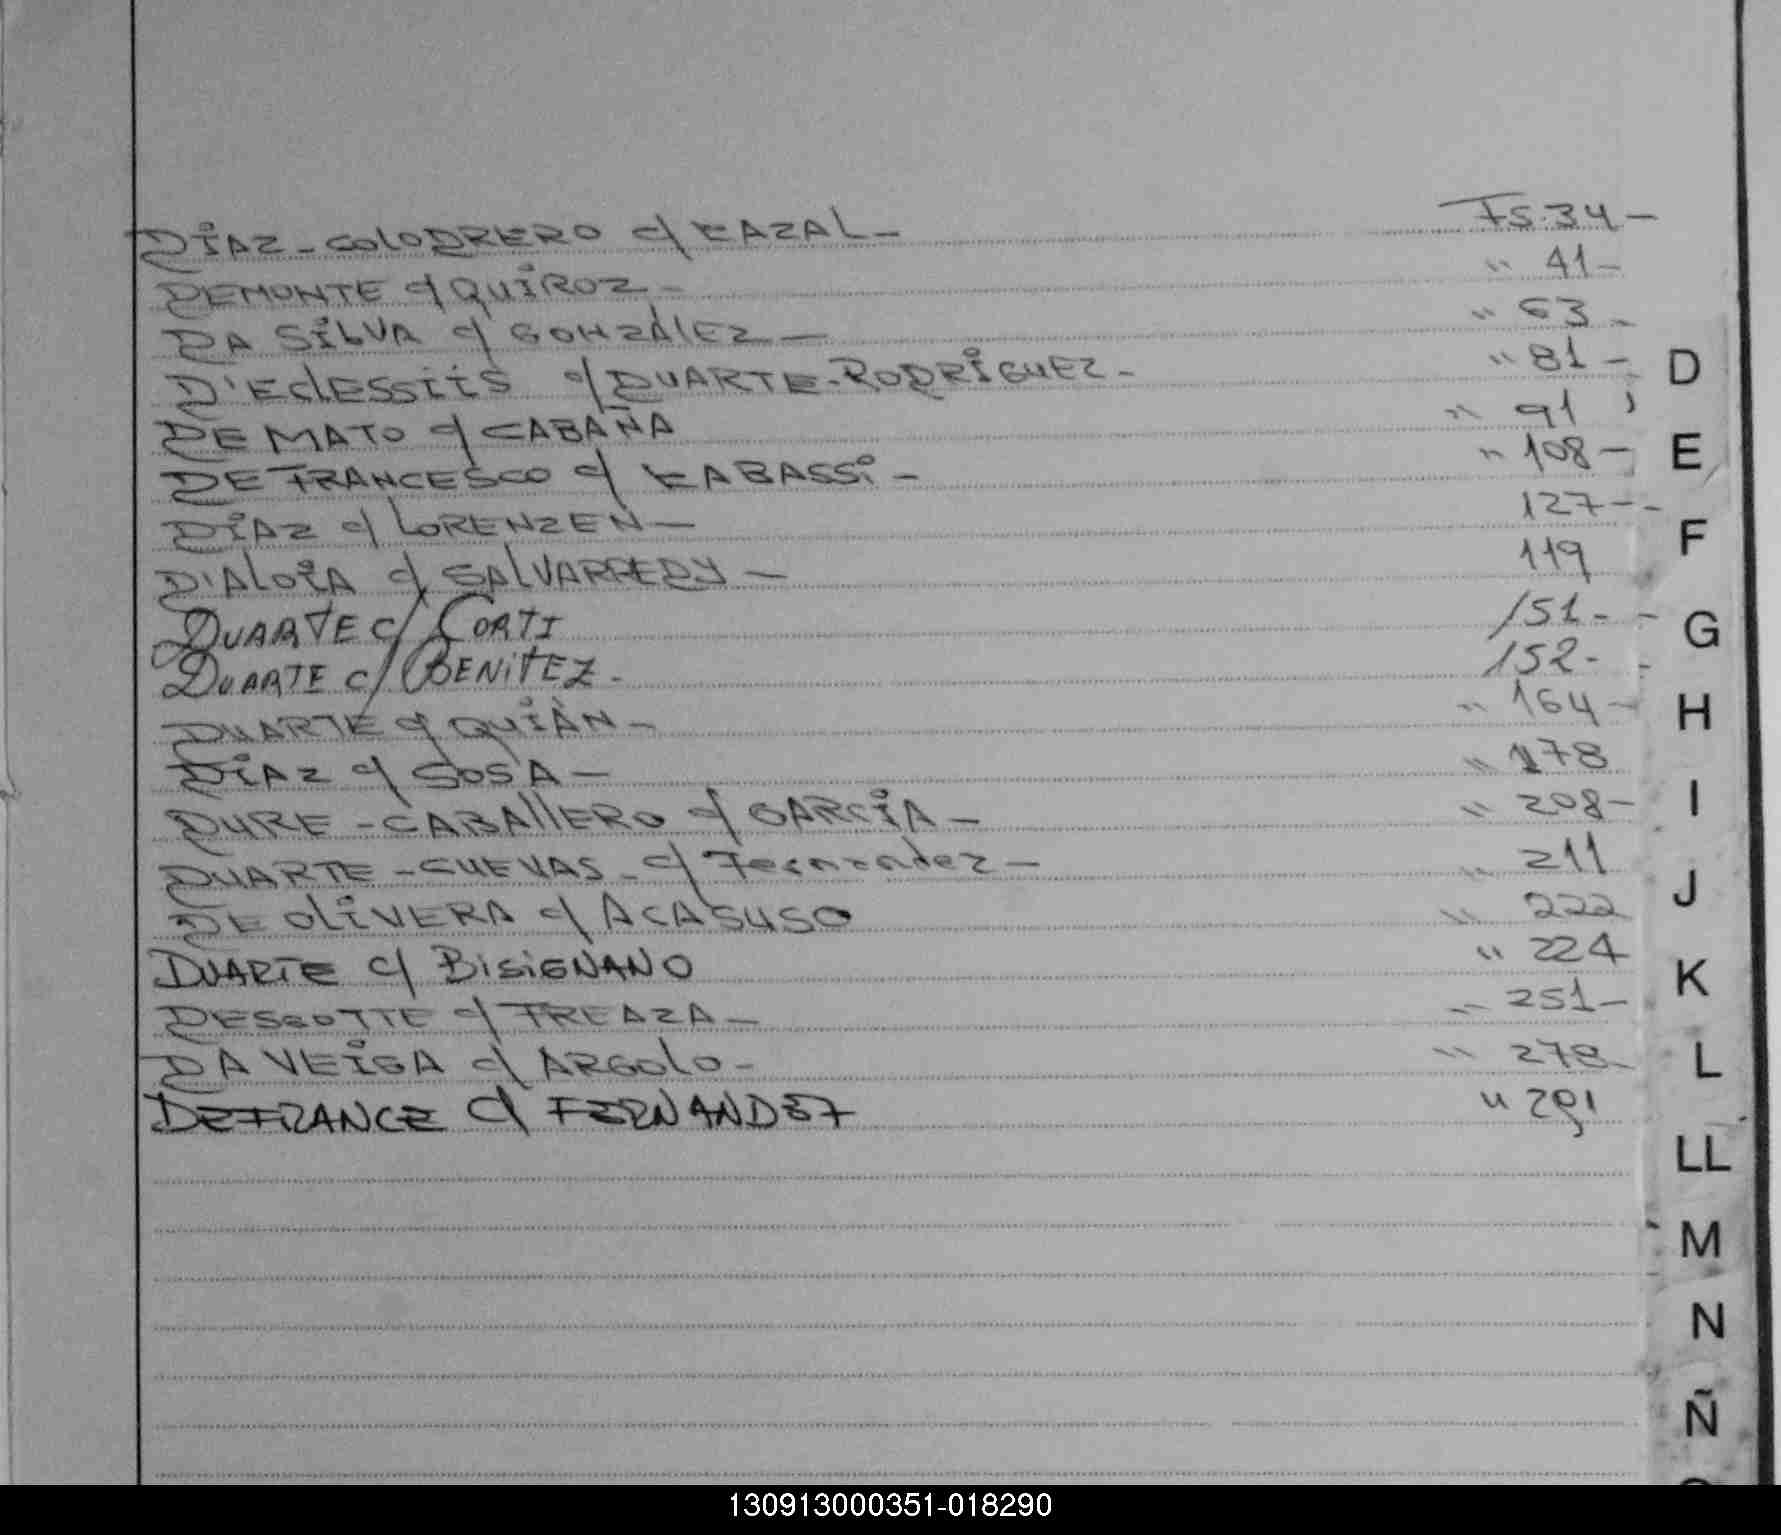 DÍAZ-COLODRERO c/ CAZAL- FS.34-
DEMONTE c/ QUIROZ.- " 41-
DA SILVA c/ GONZÁLEZ- " 63-
D'EClESSIIS c/ DUARTE-RODRÍGUEZ.- " 81-
DE MATO c/ CABAÑA " 91
DE FRANCESCO c/ CABASSi- " 108-
DÍAZ c/ LORENZEN- 127--
D'ALOIA c/ SALVARREDY- 119
DUARTE c/ CORTI 151-
DUARTE c/ BENITEZ- 152-
DUARTE c/ QUIÁN- " 164-
DÍAZ c/ SOSA- " 178
DURE-CABAllERO c/ GARCÍA- " 208-
DUARTE-CUEVAS- c/ Fernandez- " 211
DE OLIVERA c/ ACASUSO " 222
DUARTE c/ BISIGNANO " 224
DESCOTTE c/ FREAZA- " 251-
DA VEIGA c/ ARGOLO- " 278-
DEFRANCE c/ FERNANDEZ " 291
D
E
F
G
H
I
J
K
L
LL
M
N
Ñ
130913000351-018290